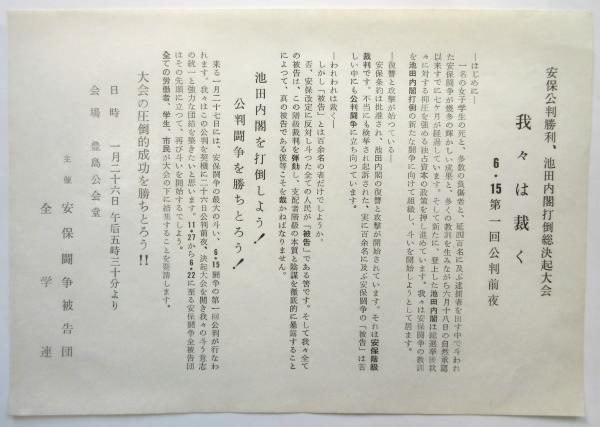 安保公判勝利、池田内閣打倒総決起大会
我々は裁く
6・15第一回公判前夜
―はじめに―
一名の女子学生の死と、多数の負傷者と、延四百名に及ぶ逮捕者を出す中で斗われ
た安保闘争が幾多の輝かしい成果と、多くの教訓を生みながら六月十八日の自然承認
以来すでに七ケ月が経過しています。そして新たに、登上した池田内閣は総選挙後我
々に対する抑圧を強める独占資本の政策を押し進めています。我々は安保闘争の教訓
を池田内閣打倒の新たな闘争に向けて組織し、斗いを開始しようとして居ます。
―復讐と攻撃は始つている―
安保条約は批准され、池田内閣の復讐と攻撃が開始されています。それは安保階級
裁判です。不当にも検挙され起訴された、実に百余名に及ぶ安保闘争の「被告」は苦
しい中にも公判闘争に立ち向つています。
―われわれは裁く―
しかし「被告」とは百余名の者だけでしようか。
否、安保改定に反対し斗つた全ての人民が「被告」である筈です。そして我々全て
の被告は、この階級裁判を弾劾し、支配者階級の本質と陰謀を徹底的に暴露すること
によつて、真の被告である彼等こそを裁かねばなりません。
池田内閣を打倒しよう!
公判闘争を勝ちとろう!
来る一月二十七日には、安保闘争の最大の斗い、6・15闘争の第一回公判が行なわ
れます。我々はこの公判を契機に二十六日公判前夜、決起大会を開き我々の斗う意志
の統一と強力な団結を築きたいと思います。11・27から6・22に至る安保闘争全被告団
はその先頭に立つて、再び斗いを開始するでしよう。
全ての労働者、学生、市民が大会の下に結集することを要請します。
大会の圧倒的成功を勝ちとろう!!
日時 一月二十六日 午后五時三十分より
会場 豊島公会堂
主催 安保闘争被告団
全学連